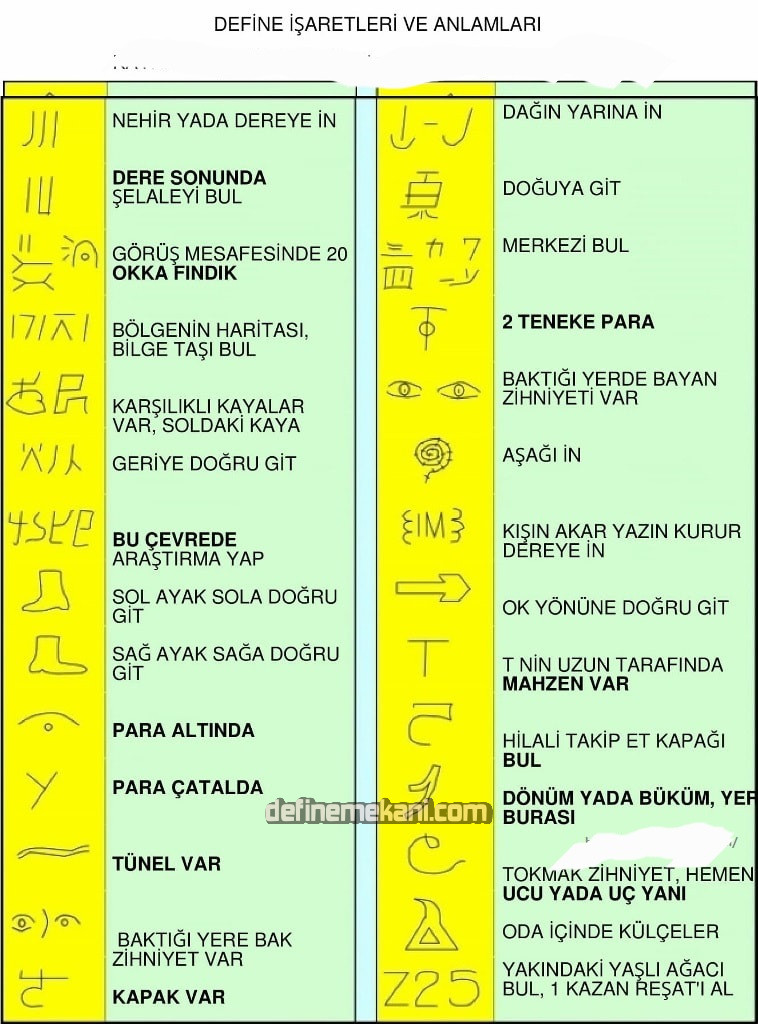 DEFİNE İŞARETLERİ VE ANLAMLARI
NEHİR YADA DEREYE İN
DERE SONUNDA
ŞELALEYİ BUL
GÖRÜŞ MESAFESİNDE 20
OKKA FINDIK
BÖLGENİN HARİTASI,
BİLGE TAŞI BUL
KARŞILIKLI KAYALAR
VAR, SOLDAKİ KAYA
GERİYE DOĞRU GİT
BU ÇEVREDE
ARAŞTIRMA YAP
SOL AYAK SOLA DOĞRU
GİT
SAĞ AYAK SAĞA DOĞRU
GİT
PARA ALTINDA
PARA ÇATALDA
TÜNEL VAR
BAKTIĞI YERE BAK
ZİHNİYET VAR
KAPAK VAR
DAĞIN YARINA İN
DOĞUYA GİT
MERKEZİ BUL
2 TENEKE PARA
BAKTIĞI YERDE BAYAN
ZİHNİYETİ VAR
AŞAĞI İN
KIŞIN AKAR YAZIN KURUR
DEREYE İN
OK YÖNÜNE DOĞRU GİT
T
T NİN UZUN TARAFINDA
MAHZEN VAR
HİLALİ TAKİP ET KAPAĞI
BUL
DÖNÜM YADA BÜKÜM, YER
BURASI
TOKMAK ZİHNİYET, HEMEN
UCU YADA UÇ YANI
ODA İÇİNDE KÜLÇELER
Z25
YAKINDAKİ YAŞLI AĞACI
BUL, 1 KAZAN REŞAT'I AL
definemekani.com